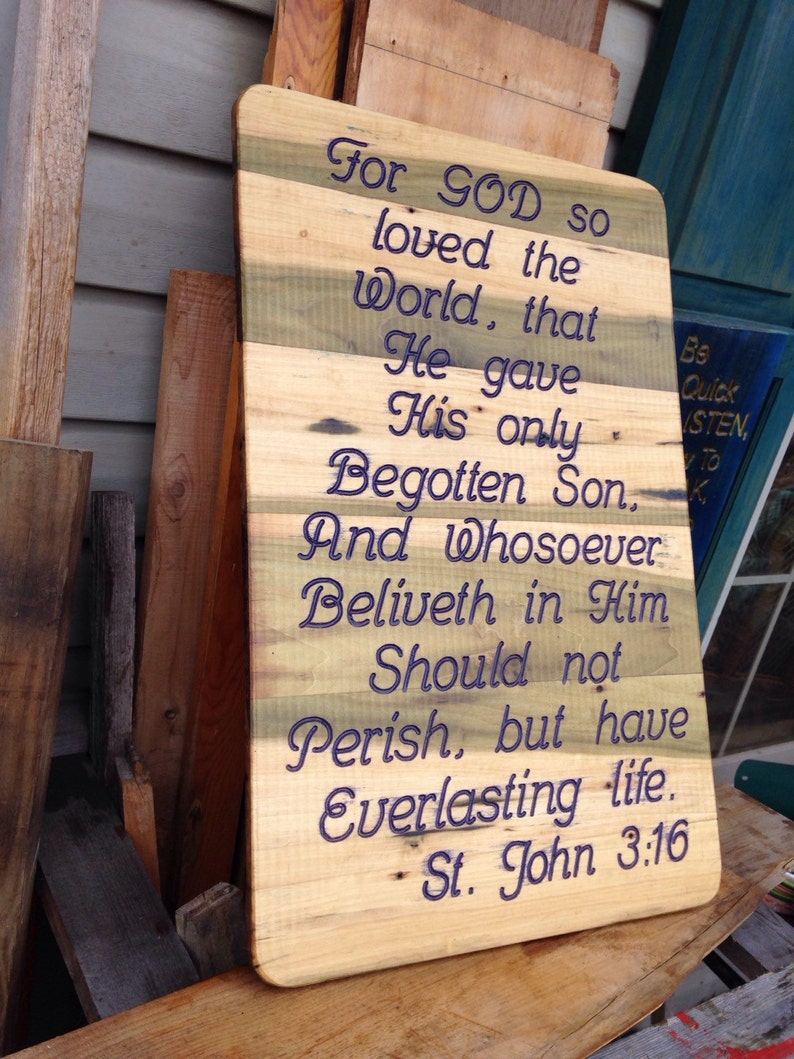 For GOD so
loved the
World, that
He gave
His only
Begotten Son,
And Whosoever
Beliveth in Him
Should not
Perish, but have
Everlasting life.
St. John 3:16
Be
Quick
To